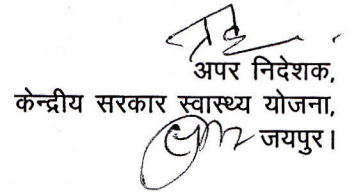 अपर निदेशक,
केन्द्रीय सरकार स्वास्थ्य योजना,
जयपुर।